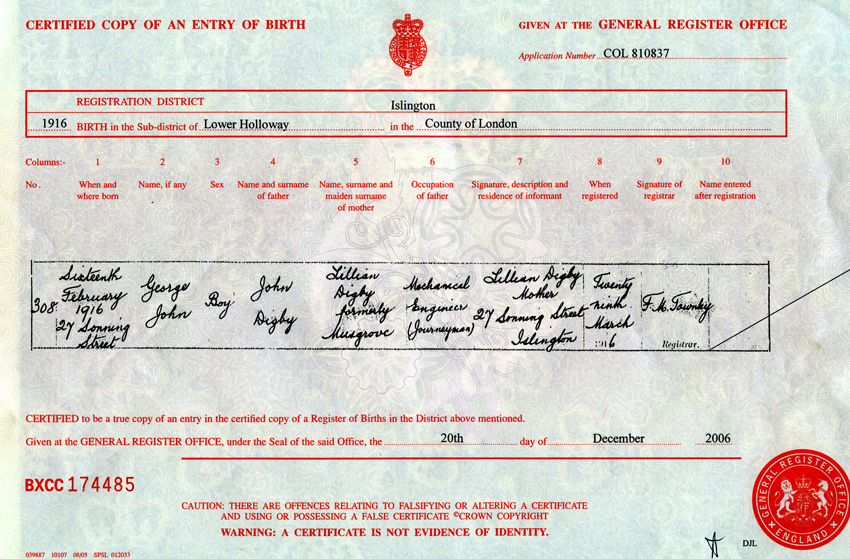 CERTIFIED COPY OF AN ENTRY OF BIRTH
GIVEN AT THE GENERAL REGISTER OFFICE
Application Number COL 810837
REGISTRATION DISTRICT Islington
1916 BIRTH in the Sub-district of Lower Holloway in the County of London
Columns:- 1 2 3 4 5 6 7 8 9 10
No. When and Name, if any Sex Name and surname Name, surname and Occupation Signature, description and When Signature of Name entered
where born of father maiden surname of father residence of informant registered registrar after registration
of mother
308
Sixteenth
February
1916
27 Sonning
Street
George
John
Boy
John
Digby
Lillian
Digby
formerly
Musgrove
Mechanical
Engineer
(Journeyman)
Lillian Digby
Mother
27 Sonning Street
Islington
Twenty
ninth
March
1916
F. M.
Registrar.
CERTIFIED to be a true copy of an entry in the certified copy of a Register of Births in the District above mentioned.
Given at the GENERAL REGISTER OFFICE, under the Seal of the said Office, the 20th day of December 2006
BXCC 174485
CAUTION: THERE ARE OFFENCES RELATING TO FALSIFYING OR ALTERING A CERTIFICATE
AND USING OR POSSESSING A FALSE CERTIFICATE ©CROWN COPYRIGHT
WARNING: A CERTIFICATE IS NOT EVIDENCE OF IDENTITY.
GENERAL REGISTER OFFICE
ENGLAND
039887 10107 08/05 SPSL 012033
DJL